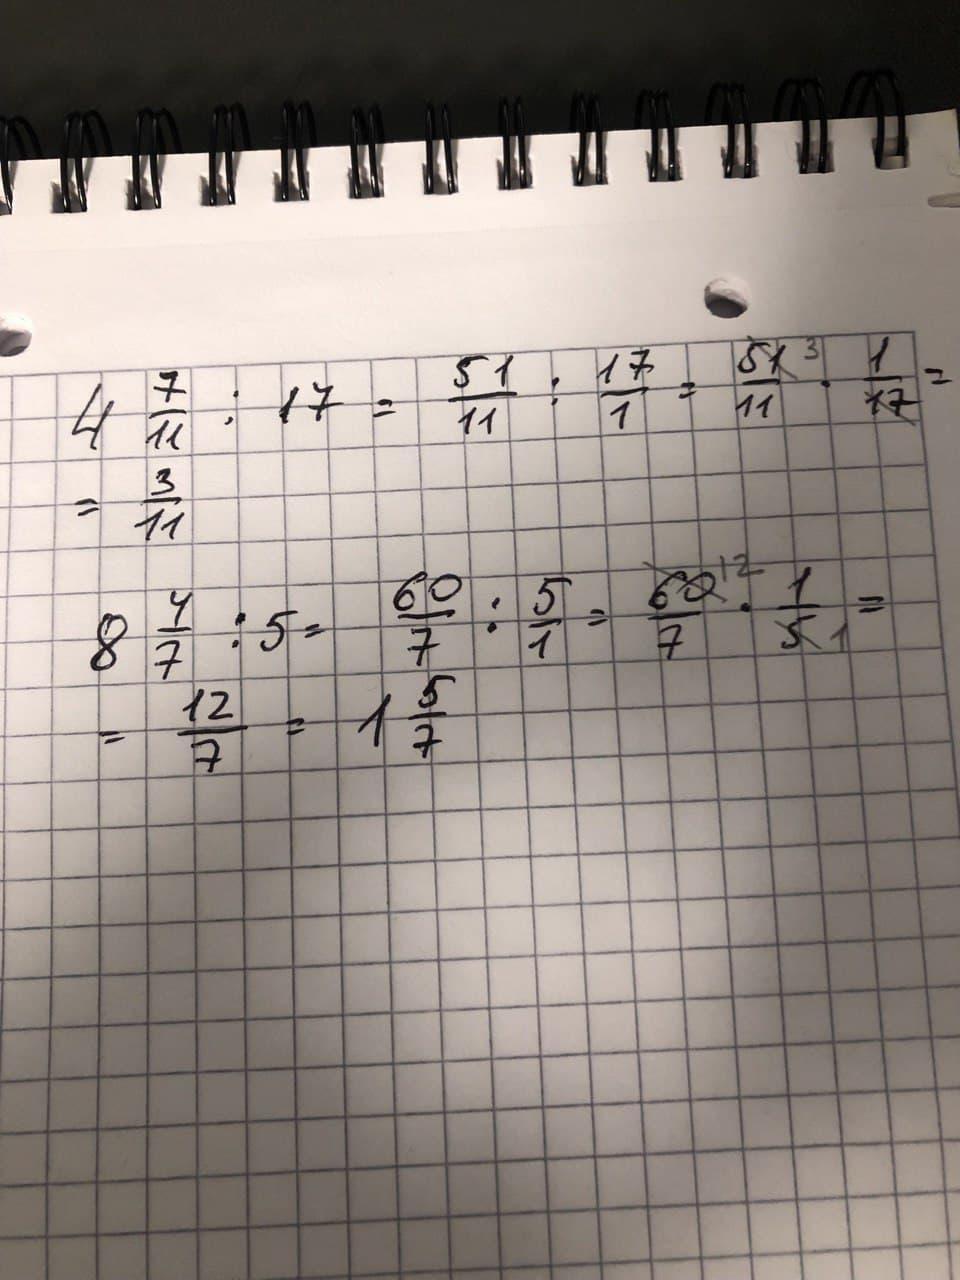 4 7/11 : 17 = 51/11 : 17/1 = 51/11 3 · 1/17 =
= 3/11
8 4/7 : 5 = 60/7 : 5/1 = 60/7 12 · 1/5 1 =
= 12/7 = 1 5/7